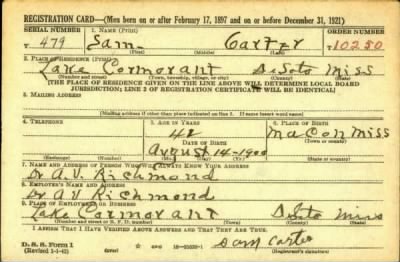 REGISTRATION CARD—(Men born on or after February 17, 1897 and on or before December 31, 1921)
SERIAL NUMBER 1. NAME (Print) ORDER NUMBER
479 Sam Carter 10250
(First) (Middle) (Last)
2. PLACE OF RESIDENCE (Print)
Lake Cormorant DeSoto Miss
(Number and street) (Town, township, village, or city) (County) (State)
[THE PLACE OF RESIDENCE GIVEN ON THE LINE ABOVE WILL DETERMINE LOCAL BOARD
JURISDICTION; LINE 2 OF REGISTRATION CERTIFICATE WILL BE IDENTICAL]
3. MAILING ADDRESS
[Mailing address if other than place indicated on line 2. If same insert word same]
4. TELEPHONE 5. AGE IN YEARS 6. PLACE OF BIRTH
42 Macon Miss
DATE OF BIRTH
August 14-1900
(Exchange) (Number) (Mo.) (Day) (Yr.) (State or country)
7. NAME AND ADDRESS OF PERSON WHO WILL ALWAYS KNOW YOUR ADDRESS
Dr A. V. Richmond
8. EMPLOYER'S NAME AND ADDRESS
Dr A V Richmond
9. PLACE OF EMPLOYMENT OR BUSINESS
Lake Cormorant DeSoto Miss
(Number and street or R. F. D. number) (Town) (County) (State)
I AFFIRM THAT I HAVE VERIFIED ABOVE ANSWERS AND THAT THEY ARE TRUE.
D. S. S. Form 1
(Revised 1-1-42) (over) Sam Carter
(Registrant's signature)